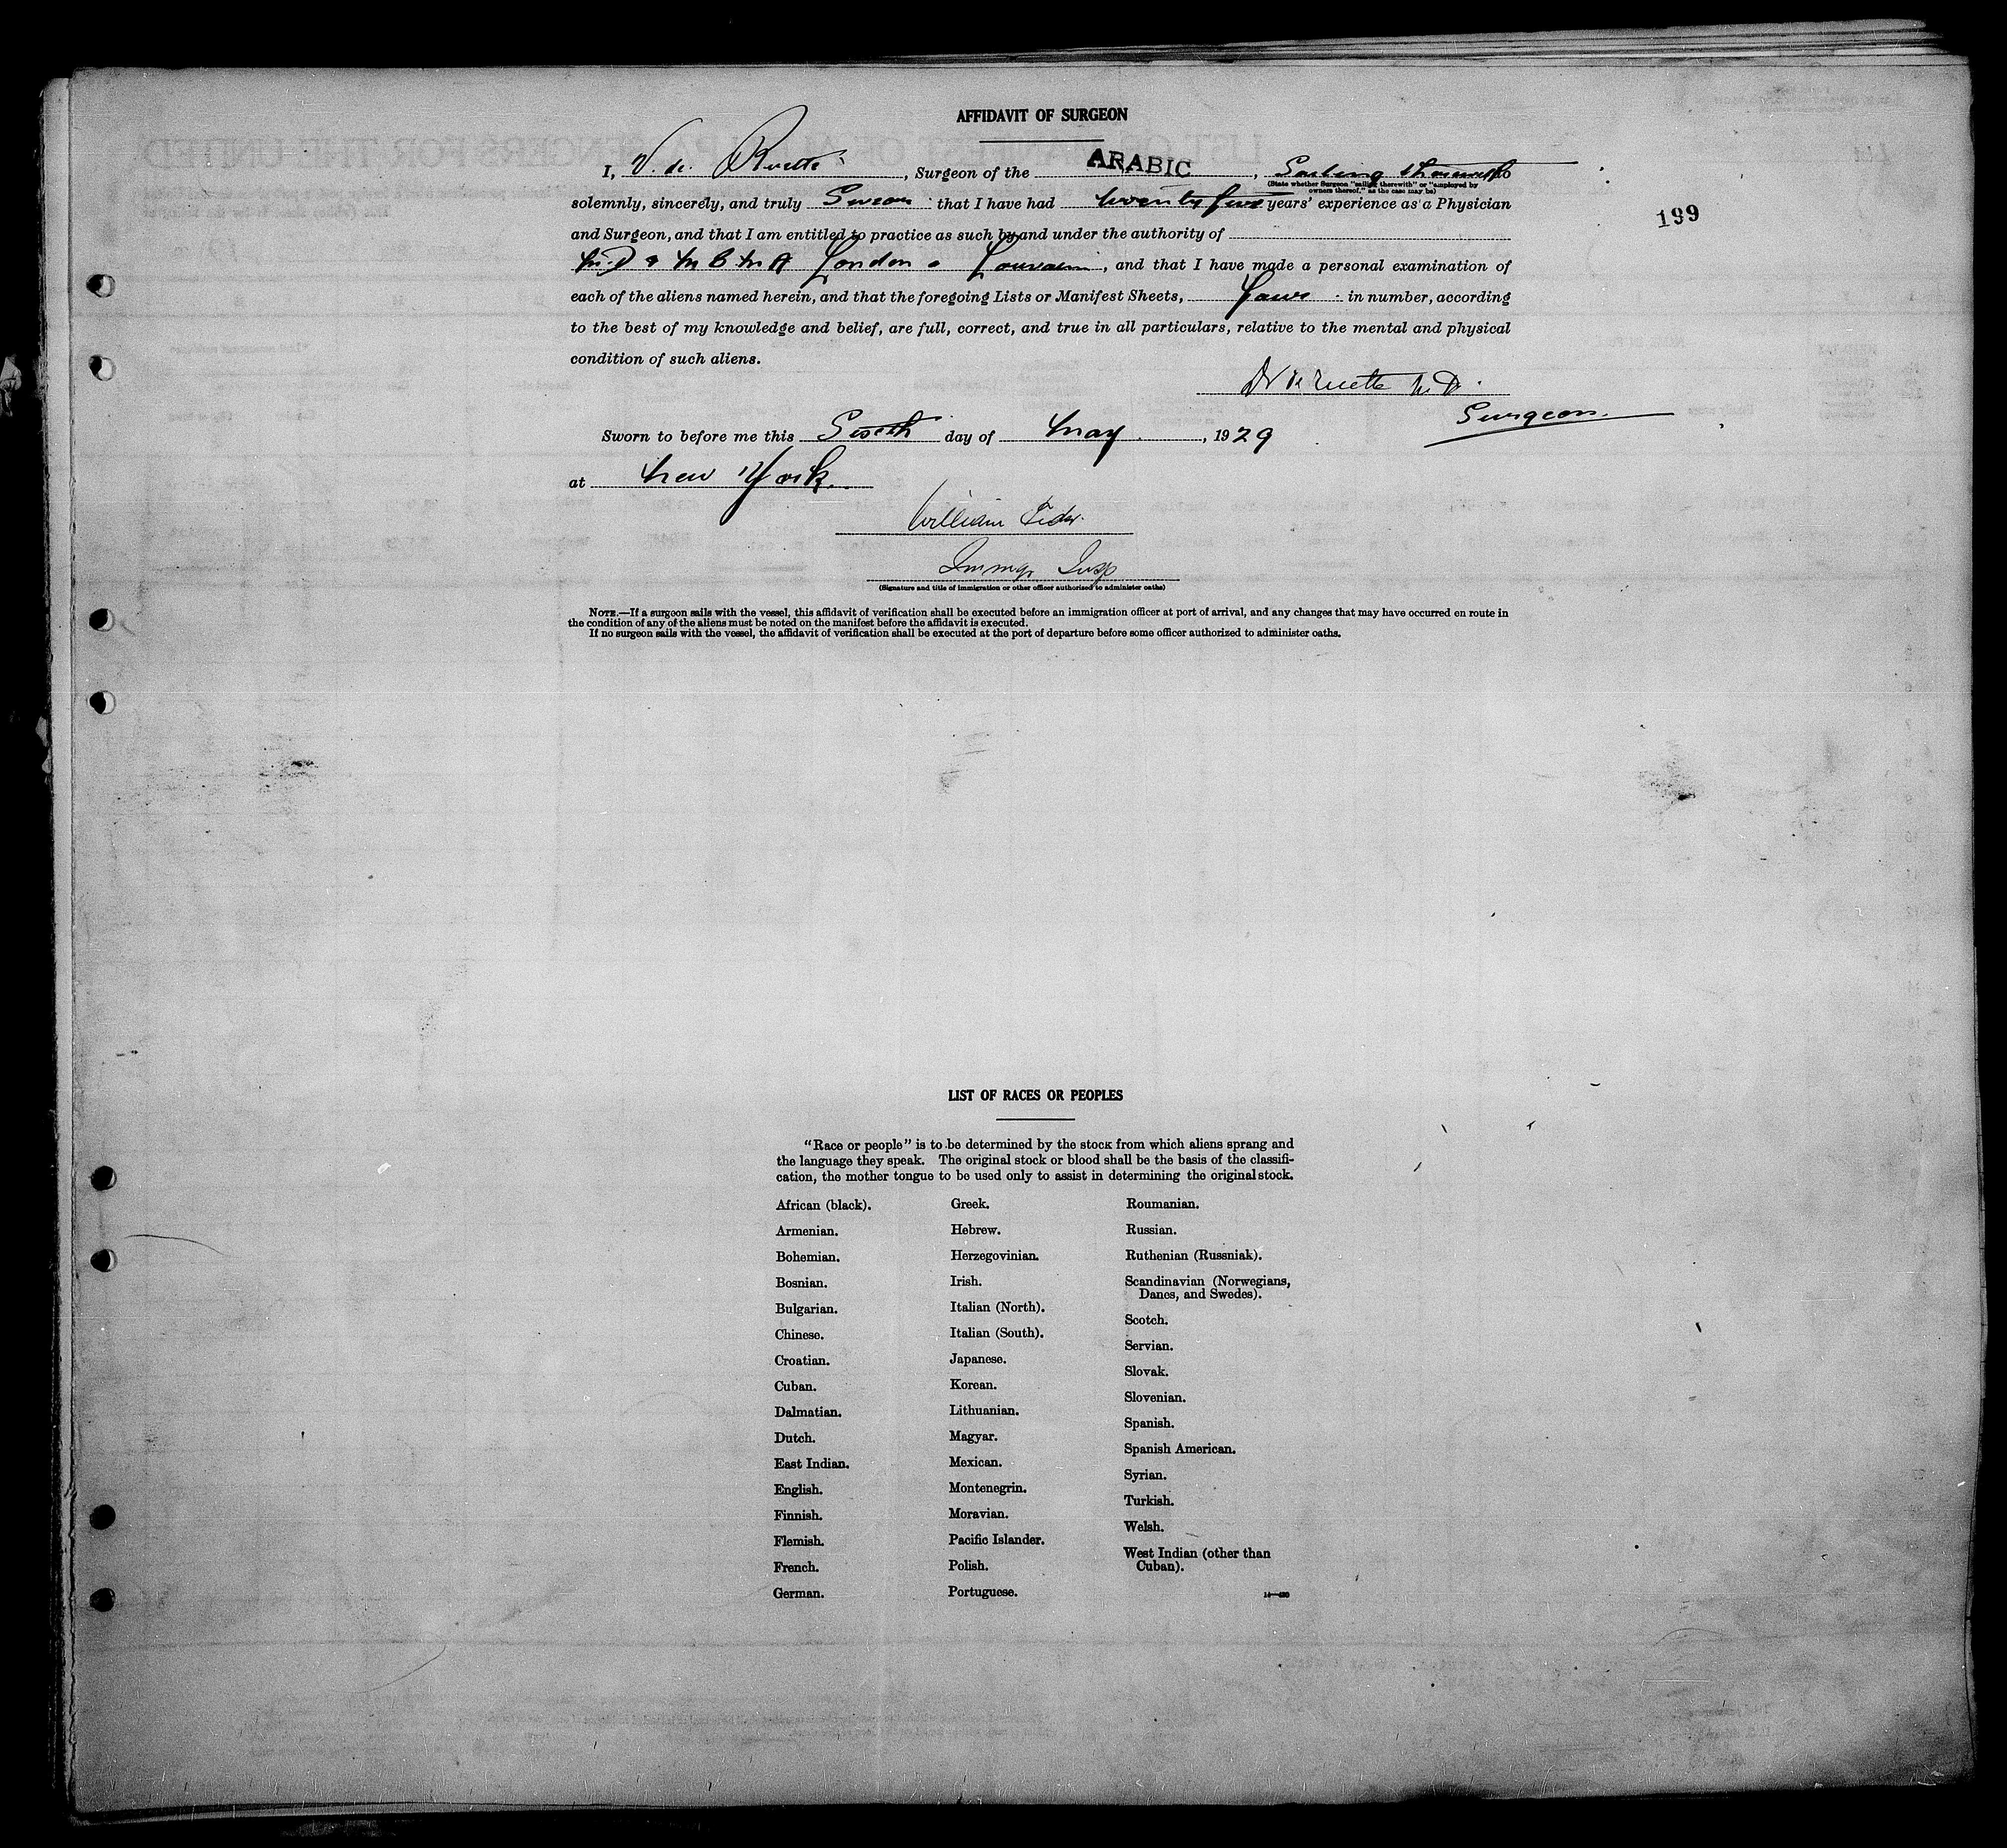 AFFIDAVIT OF SURGEON
I, V. de Ruette, Surgeon of the ARABIC, Sailing therewith do
(State whether Surgeon "sailing therewith" or "employed by
owners thereof," as the case may be)
solemnly, sincerely, and truly Swear that I have had twenty five years' experience as a Physician
199
and Surgeon, and that I am entitled to practice as such by and under the authority of
M.D & M B M A London & Louvain, and that I have made a personal examination of
each of the aliens named herein, and that the foregoing Lists or Manifest Sheets, four in number, according
to the best of my knowledge and belief, are full, correct, and true in all particulars, relative to the mental and physical
condition of such aliens.
Dr de Ruette M.D.
Surgeon.
Sworn to before me this Sixth day of May, 1929
at New York.
William
Immgr Insp
(Signature and title of immigration or other officer authorized to administer oaths)
NOTE.—If a surgeon sails with the vessel, this affidavit of verification shall be executed before an immigration officer at port of arrival, and any changes that may have occurred en route in
the condition of any of the aliens must be noted on the manifest before the affidavit is executed.
If no surgeon sails with the vessel, the affidavit of verification shall be executed at the port of departure before some officer authorized to administer oaths.
LIST OF RACES OR PEOPLES
"Race or people" is to be determined by the stock from which aliens sprang and
the language they speak. The original stock or blood shall be the basis of the classifi-
cation, the mother tongue to be used only to assist in determining the original stock.
African (black).
Armenian.
Bohemian.
Bosnian.
Bulgarian.
Chinese.
Croatian.
Cuban.
Dalmatian.
Dutch.
East Indian.
English.
Finnish.
Flemish.
French.
German.
Greek.
Hebrew.
Herzegovinian.
Irish.
Italian (North).
Italian (South).
Japanese.
Korean.
Lithuanian.
Magyar.
Mexican.
Montenegrin.
Moravian.
Pacific Islander.
Polish.
Portuguese.
Roumanian.
Russian.
Ruthenian (Russniak).
Scandinavian (Norwegians,
Danes, and Swedes).
Scotch.
Servian.
Slovak.
Slovenian.
Spanish.
Spanish American.
Syrian.
Turkish.
Welsh.
West Indian (other than
Cuban).